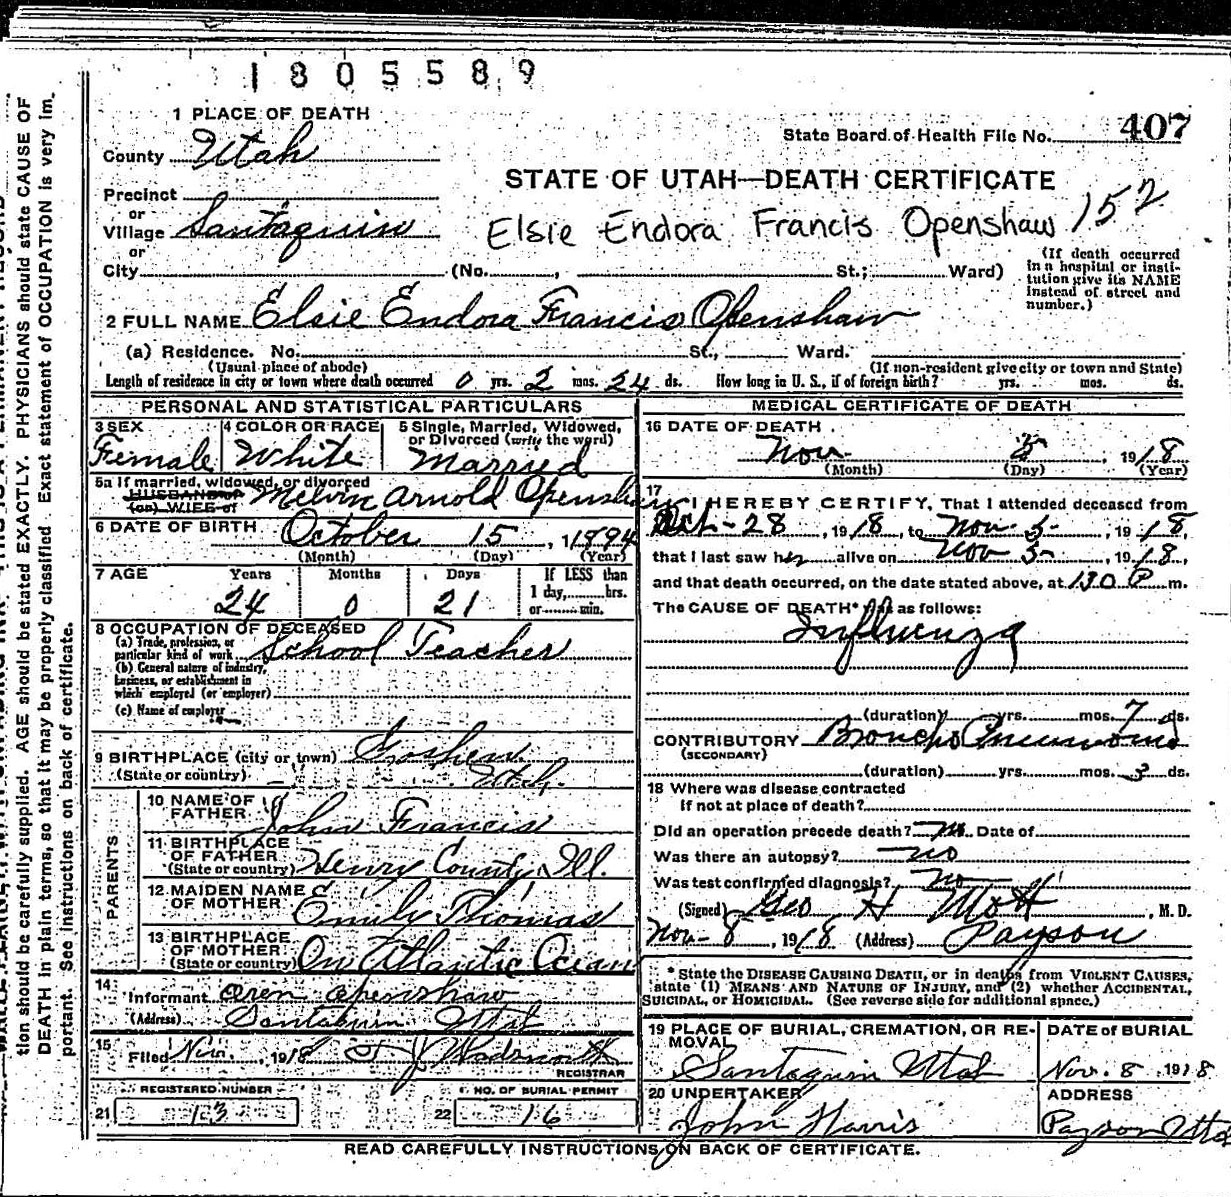 1805589
1 PLACE OF DEATH
County Utah
State Board of Health File No. 407
STATE OF UTAH—DEATH CERTIFICATE
Precinct
or
Village Santaquin
Elsie Endora Francis Openshaw 152
or
City (No. , St.; Ward)
(If death occurred
in a hospital or insti-
tution give its NAME
instead of street and
number.)
2 FULL NAME Elsie Endora Francis Openshaw
(a) Residence. No. St., Ward.
(Usual place of abode) (If non-resident give city or town and State)
Length of residence in city or town where death occurred 0 yrs. 2 mos. 24 ds. How long in U. S., if of foreign birth? yrs. mos. ds.
PERSONAL AND STATISTICAL PARTICULARS
3 SEX 4 COLOR OR RACE 5 Single, Married, Widowed,
or Divorced (write the word)
Female White Married
5a If married, widowed, or divorced
HUSBAND of
(or) WIFE of Melvin Arnold Openshaw
6 DATE OF BIRTH October 15, 1894
(Month) (Day) (Year)
7 AGE Years Months Days If LESS than
1 day, hrs.
or min.
24 0 21
8 OCCUPATION OF DECEASED
(a) Trade, profession, or
particular kind of work School Teacher
(b) General nature of industry,
business, or establishment in
which employed (or employer)
(c) Name of employer
9 BIRTHPLACE (city or town) Goshen
(State or country) Utah.
PARENTS
10 NAME OF
FATHER John Francis
11 BIRTHPLACE
OF FATHER
(State or country) Henry County, Ill.
12 MAIDEN NAME
OF MOTHER Emily Thomas
13 BIRTHPLACE
OF MOTHER
(State or country) On Atlantic Ocean
14
Informant Oren Openshaw
(Address) Santaquin Utah
15
Filed Nov. , 1918 J Wadsworth
REGISTRAR
REGISTERED NUMBER NO. OF BURIAL PERMIT
21 13 22 16
MEDICAL CERTIFICATE OF DEATH
16 DATE OF DEATH
Nov 5, 1918
(Month) (Day) (Year)
17
I HEREBY CERTIFY, That I attended deceased from
Oct-28, 1918, to Nov-5-, 1918,
that I last saw her alive on Nov 5-, 1918,
and that death occurred, on the date stated above, at 130 P m.
The CAUSE OF DEATH* was as follows:
Influenza
(duration) yrs. mos. 7 ds.
CONTRIBUTORY Broncho Pneumonia
(SECONDARY)
(duration) yrs. mos. 3 ds.
18 Where was disease contracted
if not at place of death?
Did an operation precede death? no Date of
Was there an autopsy? no
Was test confirmed diagnosis? no
(Signed) Geo H Mott, M. D.
Nov-8, 1918 (Address) Payson
*State the DISEASE CAUSING DEATH, or in deaths from VIOLENT CAUSES,
state (1) MEANS AND NATURE OF INJURY, and (2) whether ACCIDENTAL,
SUICIDAL, or HOMICIDAL. (See reverse side for additional space.)
19 PLACE OF BURIAL, CREMATION, OR RE-
MOVAL
Santaquin Utah
DATE of BURIAL
Nov. 8 1918
20 UNDERTAKER
John Harris
ADDRESS
Payson Utah
READ CAREFULLY INSTRUCTIONS ON BACK OF CERTIFICATE.
tion should be carefully supplied. AGE should be stated EXACTLY. PHYSICIANS should state CAUSE OF
DEATH in plain terms, so that it may be properly classified. Exact statement of OCCUPATION is very im-
portant. See instructions on back of certificate.